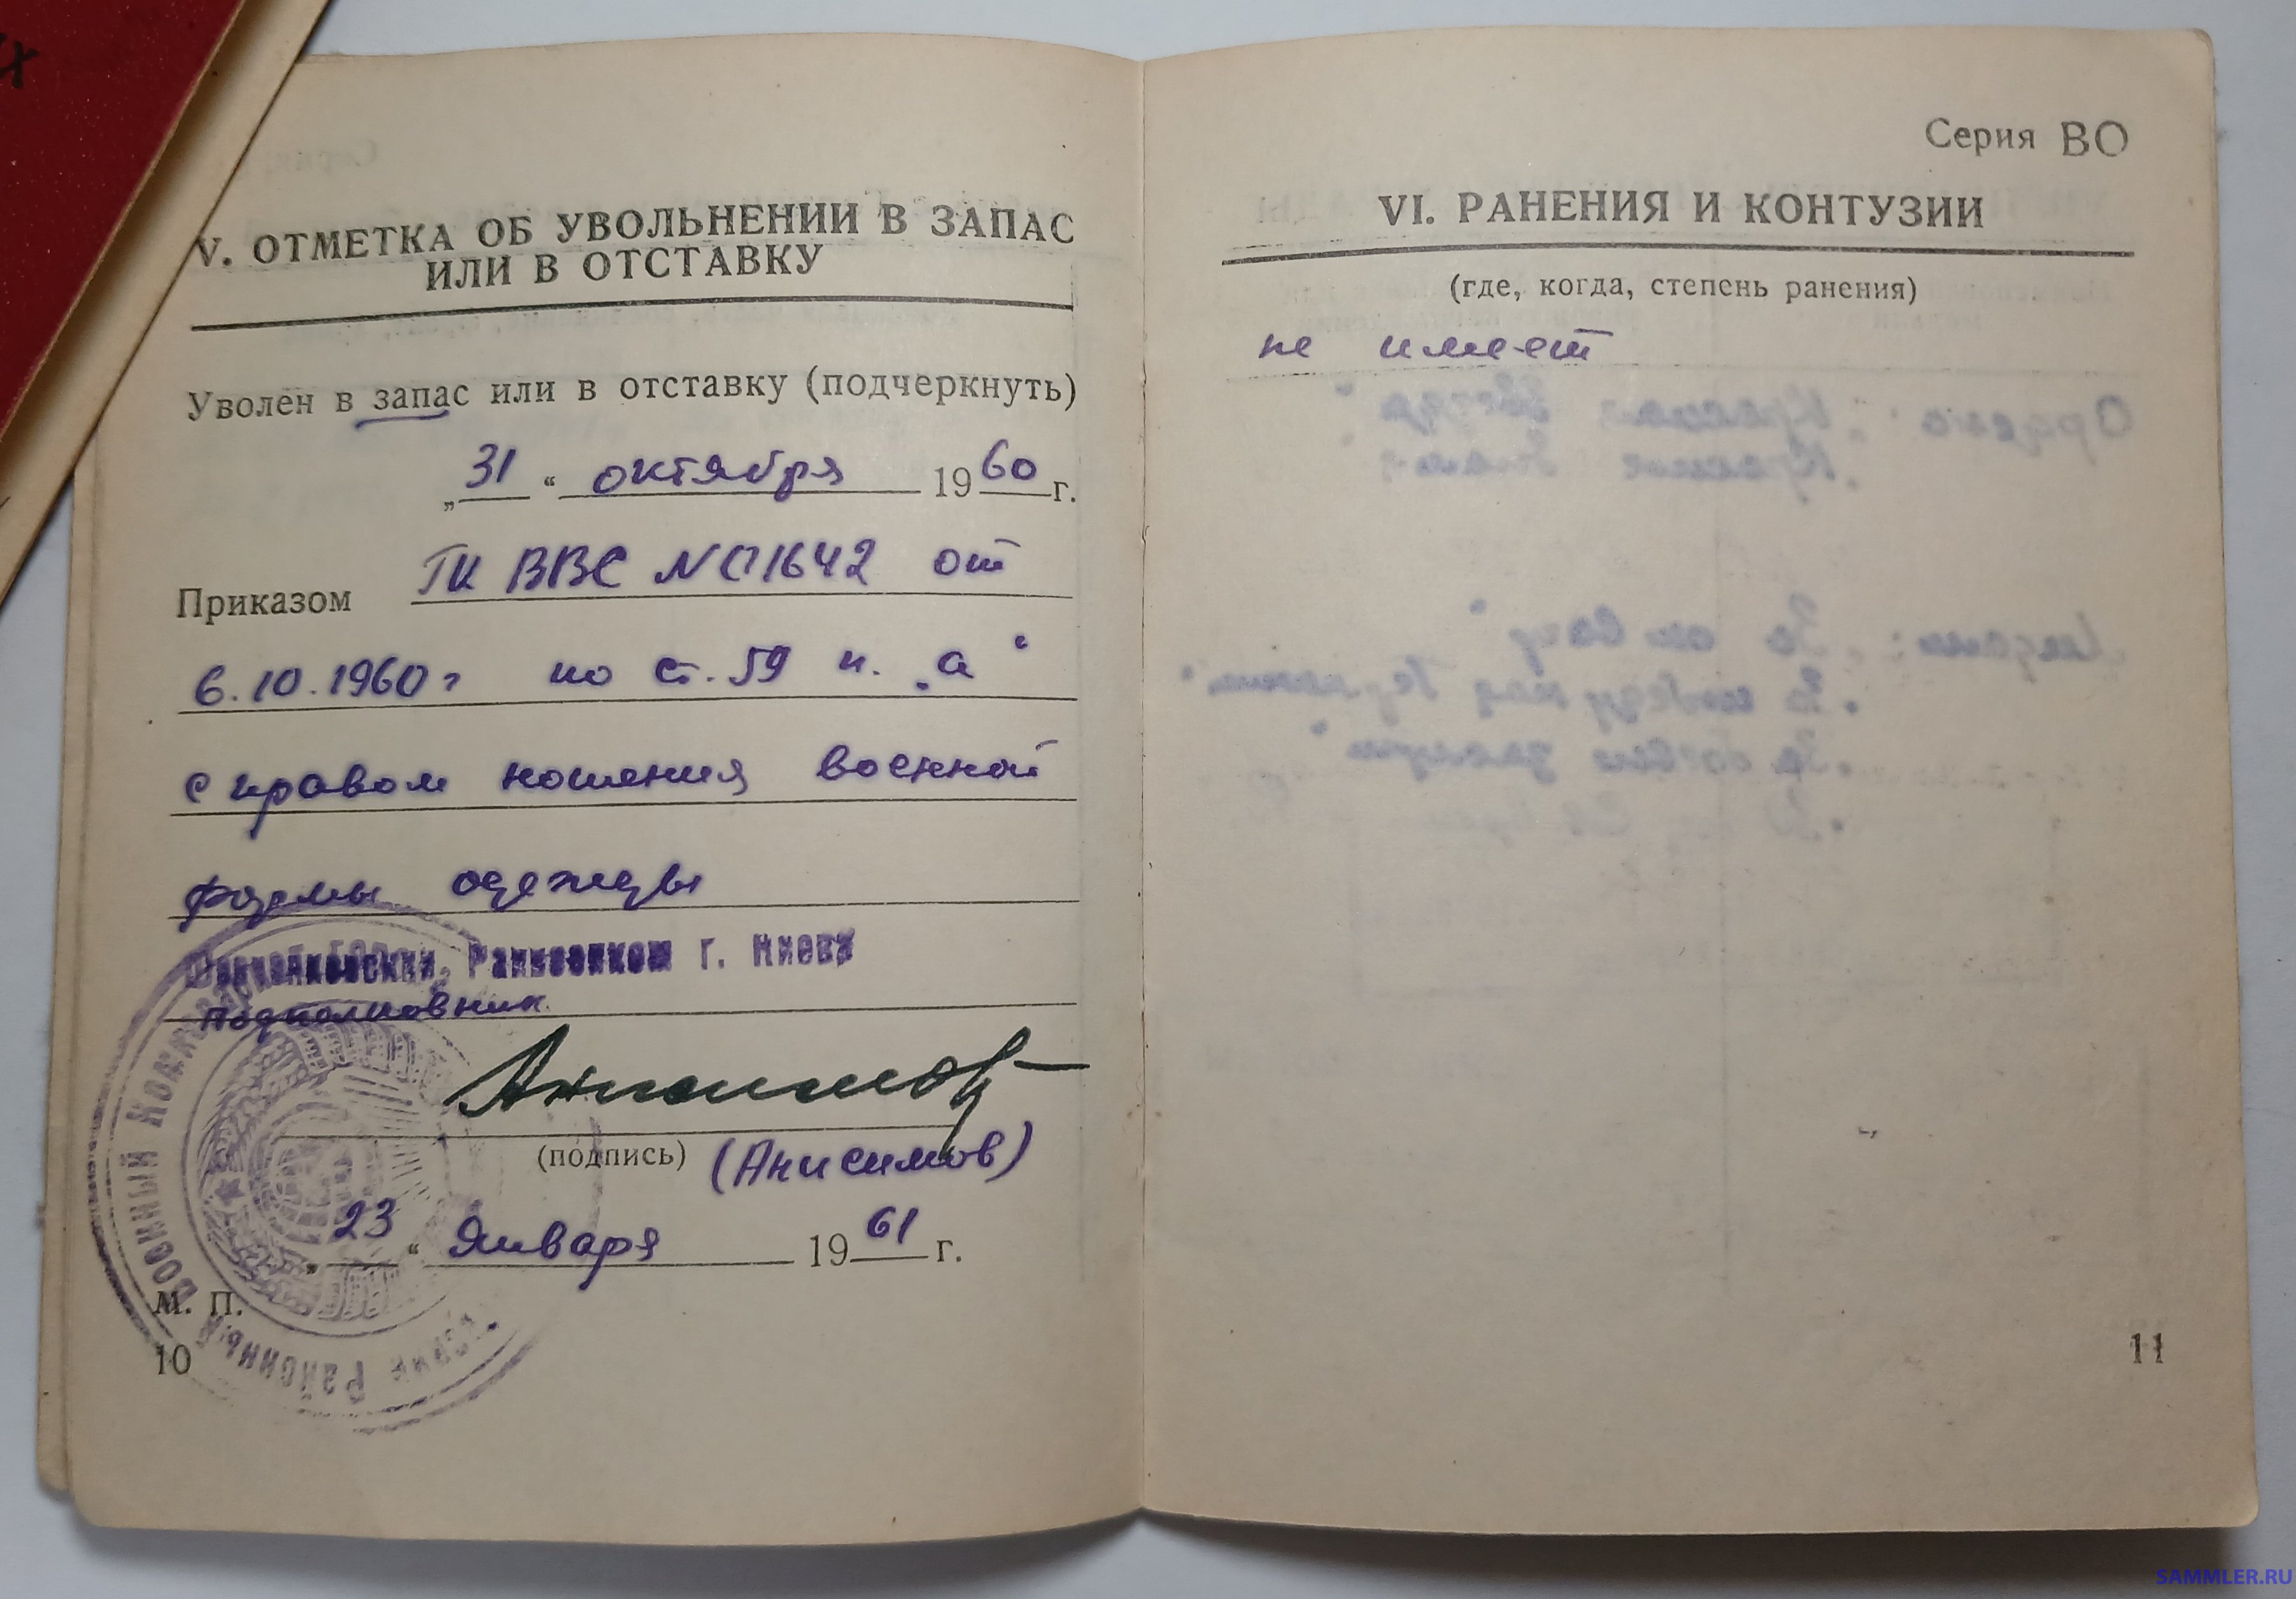 V. ОТМЕТКА ОБ УВОЛЬНЕНИИ В ЗАПАС
ИЛИ В ОТСТАВКУ
Уволен в запас или в отставку (подчеркнуть)
„31“ октября 1960 г.
Приказом ГК ВВС № 01642 от
6.10.1960 г по ст. 59 п. „а“
с правом ношения военной
формы одежды
Райвоенком г. Киева
Подполковник
Анисимов
(подпись) (Анисимов)
„23“ января 1961 г.
М. П.
Военный Районный
10
Серия ВО
VI. РАНЕНИЯ И КОНТУЗИИ
(где, когда, степень ранения)
не имеет
11
SAMMLER.RU